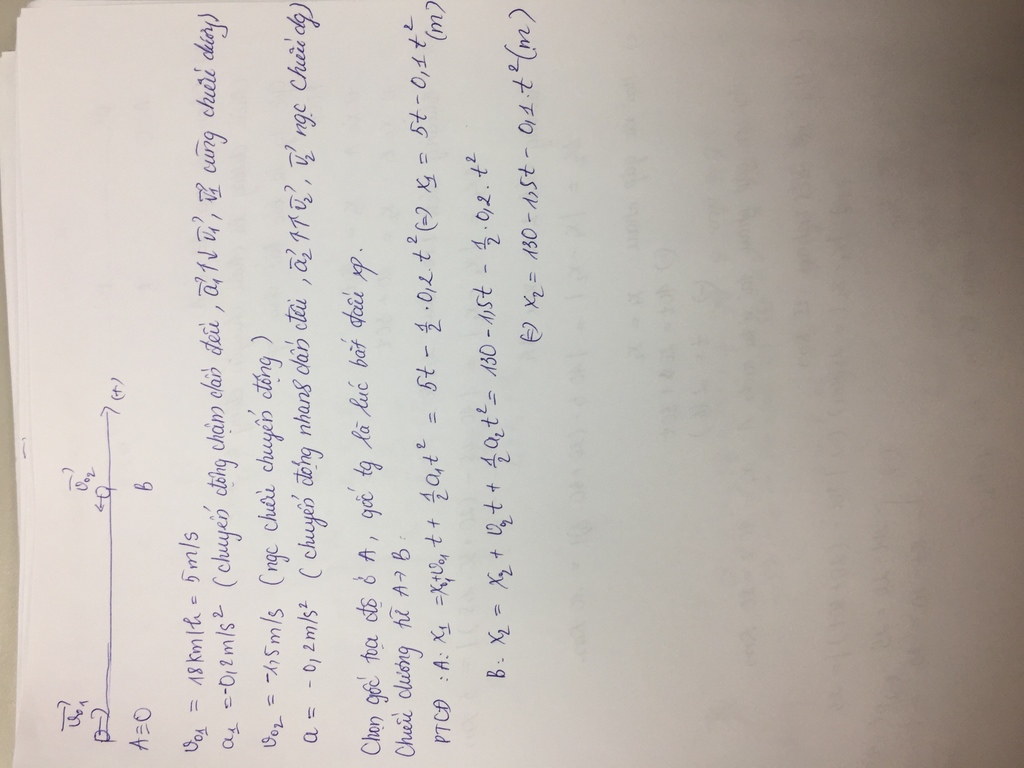 v⃗01 v⃗02
A≡O B (+)
v01 = 18km/h = 5m/s
a1 = -0,2m/s² (chuyển động chậm dần đều, a⃗1↑↓v⃗1, v⃗1 cùng chiều dương)
v02 = -1,5m/s (ngc chiều chuyển động)
a = -0,2m/s² (chuyển động nhanh dần đều, a⃗2↑↑v⃗2, v⃗2 ngc chiều dg)
Chọn gốc tọa độ ở A, gốc tg là lúc bắt đầu xp.
Chiều dương từ A→B.
PTCĐ: A: x1 = x1+v01t + 1/2a1t² = 5t - 1/2.0,2.t² (=) x1 = 5t - 0,1t² (m)
B: x2 = x2 + v2t + 1/2a2t² = 130-1,5t - 1/2.0,2.t²
(=) x2 = 130-1,5t - 0,1.t² (m)